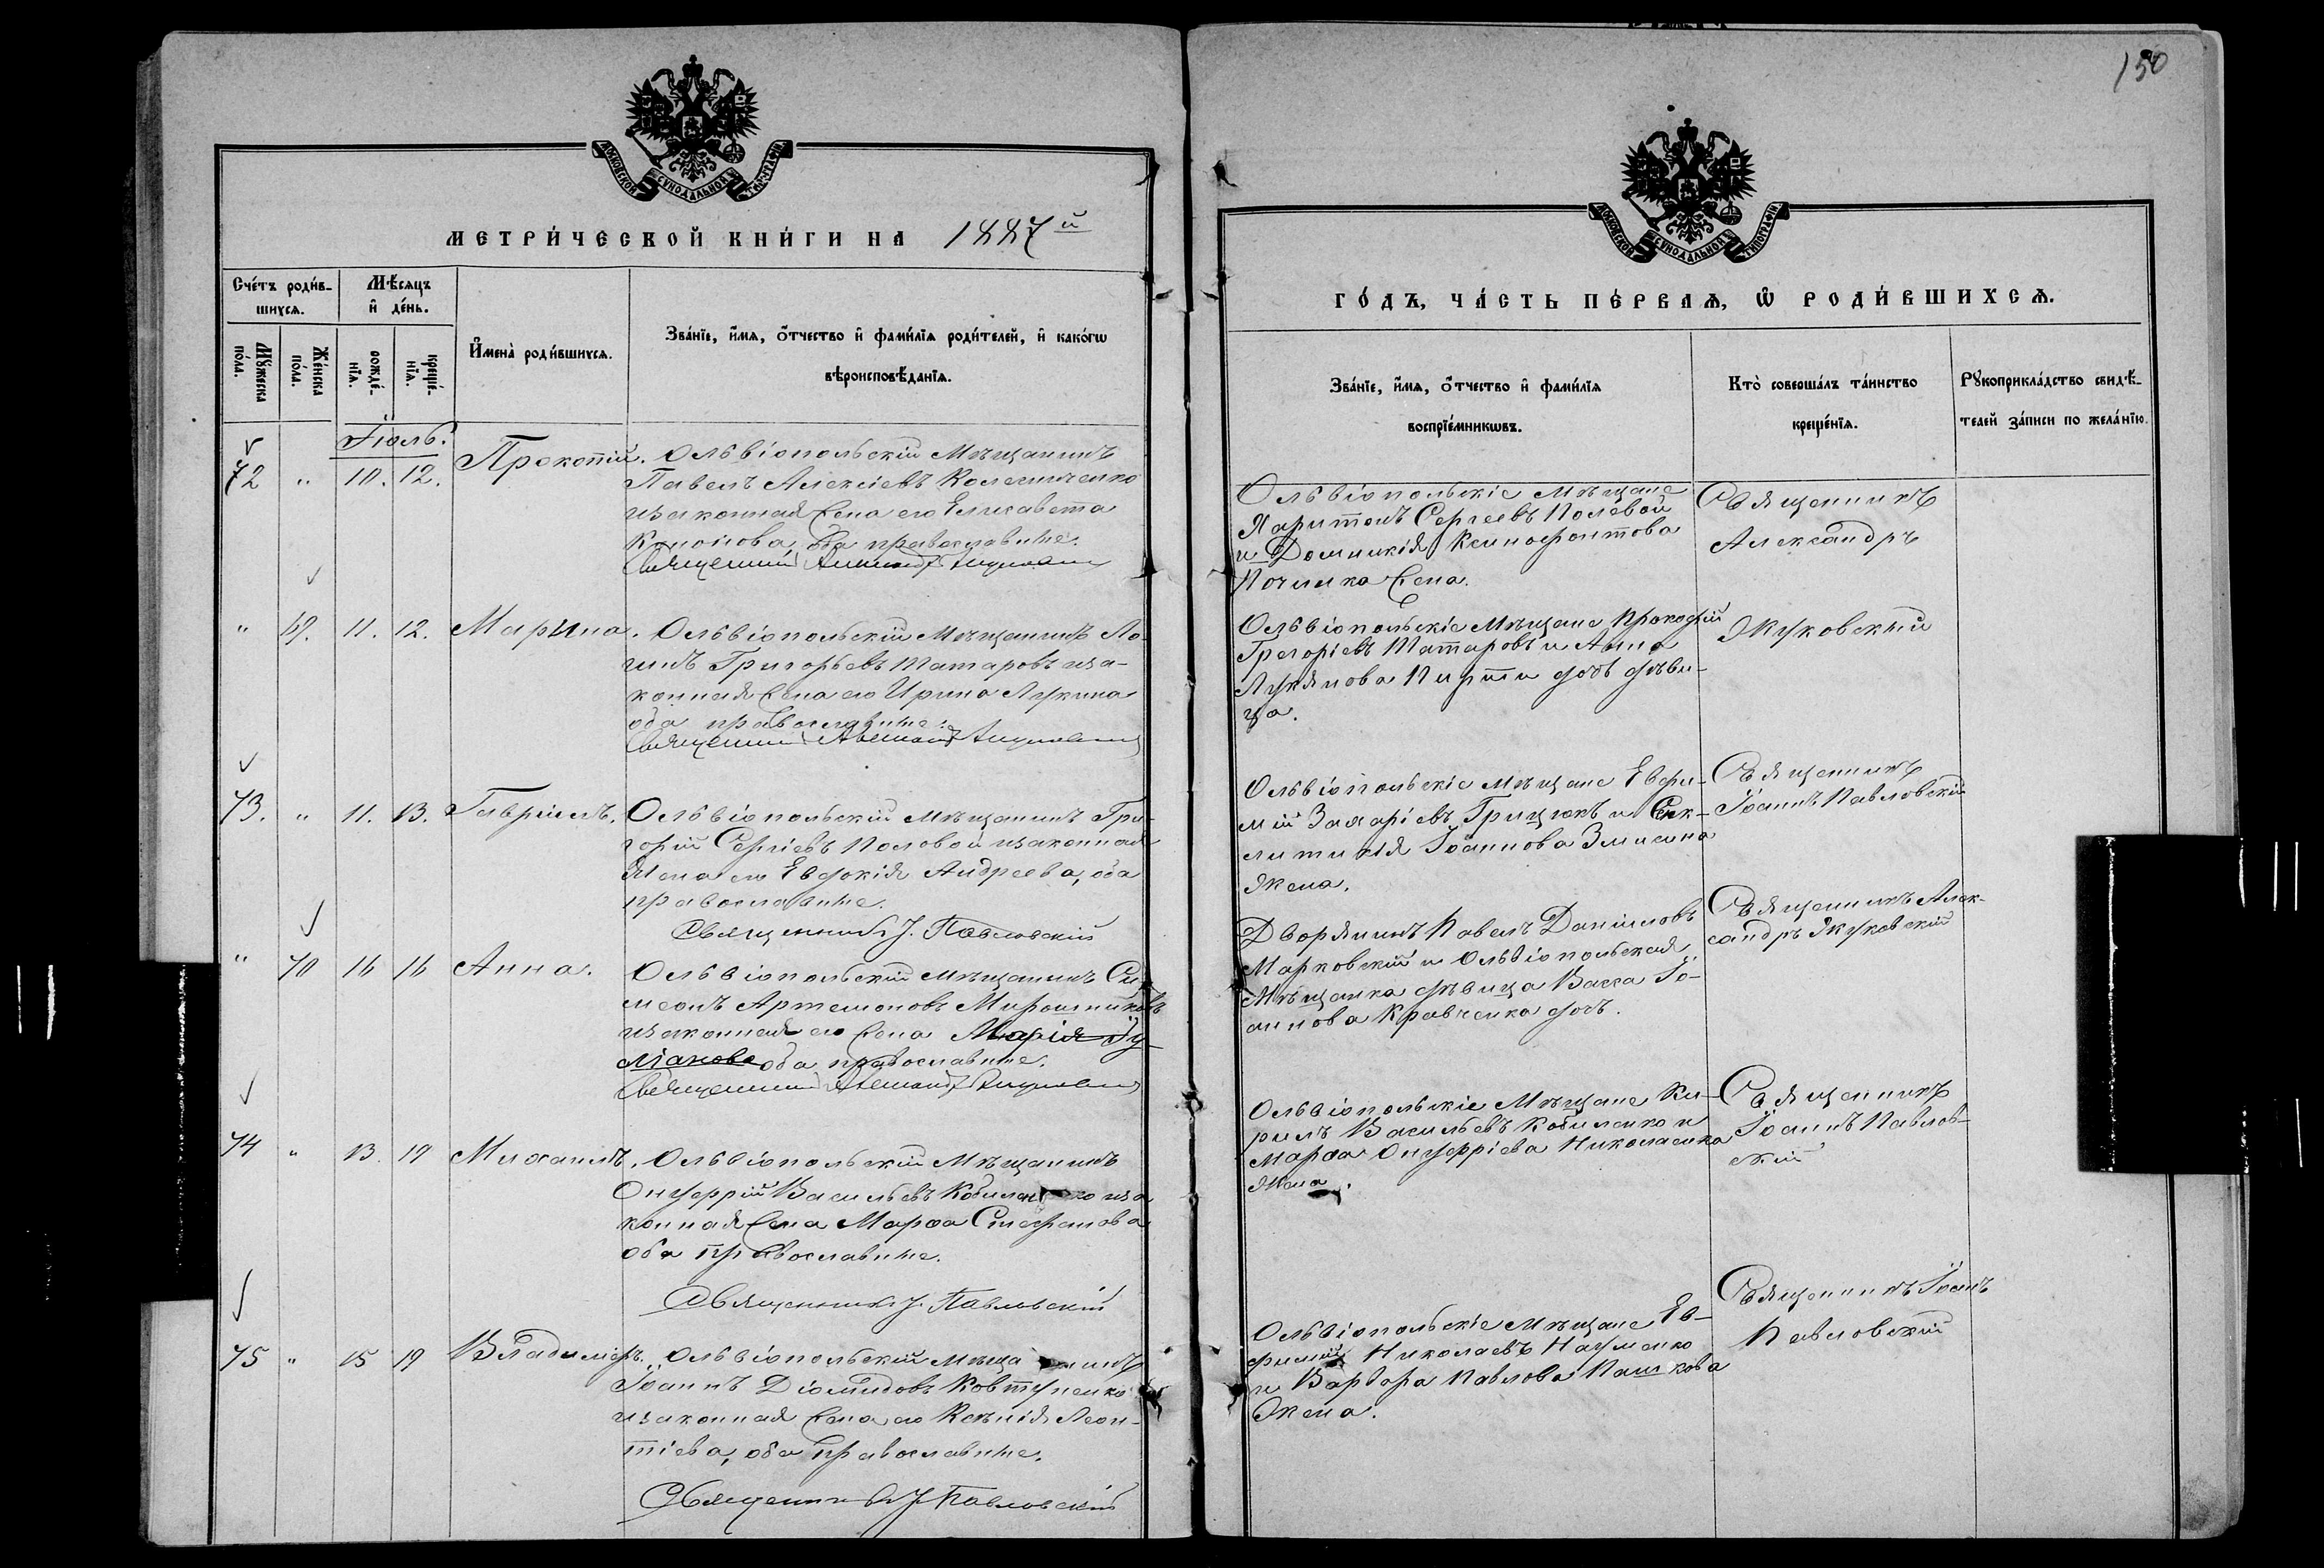 150
МОСКОВСКОЙ СѴНОДАЛЬНОЙ ТИПОГРАФІИ
МЕТРИ́ЧЕСКОЙ КНИ́ГИ НА 1887й
Сче́тъ роди́в-
шихся.
Мꙋ́жеска
по́ла.
Же́нска
по́ла.
Мѣ́сяцъ
и҆ де́нь.
рожде́-
нїя.
креще́-
нїя.
И҆мена̀ роди́вшихся.
Зва́нїе, и҆́мя, ѻ҆́тчество и҆ фами́лїя роди́телей, и҆ како́гѡ
вѣроисповѣ́данїя.
Іюль.
72 " 10. 12. Прокопій. Ольвіопольскій Мѣщанинъ
Павелъ Алексіевъ Колесниченко
изаконная жена его Елисавета
Кононова, оба православные.
Священникъ Александръ
" 69. 11. 12. Марина. Ольвіопольскій Мѣщанинъ Ло-
гинъ Григорьевъ Татаровъ иза-
конная жена его Ирина Лукина
оба православные.
Священникъ Александръ
73. " 11. 13. Гавріилъ. Ольвіопольскій мѣщанинъ Гри-
горій Сергіевъ Половой изаконная
жена его Евдокія Андреева, оба
православные.
Священникъ І. Павловскій
" 70 16 16 Анна. Ольвіопольскій мѣщанинъ Си-
меонъ Артемоновъ Мирошниковъ
изаконная его жена Марія
оба православные.
Священникъ Александръ
74 " 13. 19 Михаилъ. Ольвіопольскій Мѣщанинъ
Онуфрій Васильевъ иза
конная жена Марѳа Стефанова
оба православные.
Священникъ І. Павловскій
75 " 15 19 Владиміръ. Ольвіопольскій мѣщанинъ
Іоаннъ Діомидовъ Ковтуненко
изаконная жена его Ксенія Леон-
тіева, оба православные.
Священникъ І. Павловскій
МОСКОВСКОЙ СѴНОДАЛЬНОЙ ТИПОГРАФІИ
ГО́ДЪ, ЧА́СТЬ ПЕ́РВАѦ, Ѽ РОДИ́ВШИХСѦ.
Зва́нїе, и҆́мя, ѻ҆́тчество и҆ фами́лїя
воспрїе́мникѡвъ.
Кто̀ соверша́лъ та́инство
креще́нїя.
Рꙋкоприкла́дство свидѣ́-
телей за́писи по жела́нїю.
Ольвіопольскіе мѣщане
Харитонъ Сергеевъ Полевой
и Домникія Ксенофонтова
Починка жена.
Священникъ
Александръ
Жуковскій
Ольвіопольскіе Мѣщане Прокофій
Грегоріевъ Татаровъ и Анна
Лукянова дочь дѣви-
ца.
Ольвіопольскіе мѣщане Евфи-
мій Захаріевъ Грицюкъ и
Іоаннова
жена.
Священникъ
Іоаннъ Павловскій
Дворянинъ Павелъ Даніиловъ
Марковскій и Ольвіопольская
Мѣщанка дѣвица Васса Іо-
аннова Кравченка дочь.
Священникъ Алек-
сандръ Жуковскій
Ольвіопольскіе Мѣщане Ки-
рилъ Васильевъ Кобиленко и
Марѳа Онуфріева Николаенка
жена.
Священникъ
Іоаннъ Павлов-
скій
Ольвіопольскіе мѣщане Ев-
фимій Николаевъ Науменко
и Варвара Павлова Пашкова
жена.
Священникъ Іоанъ
Павловскій